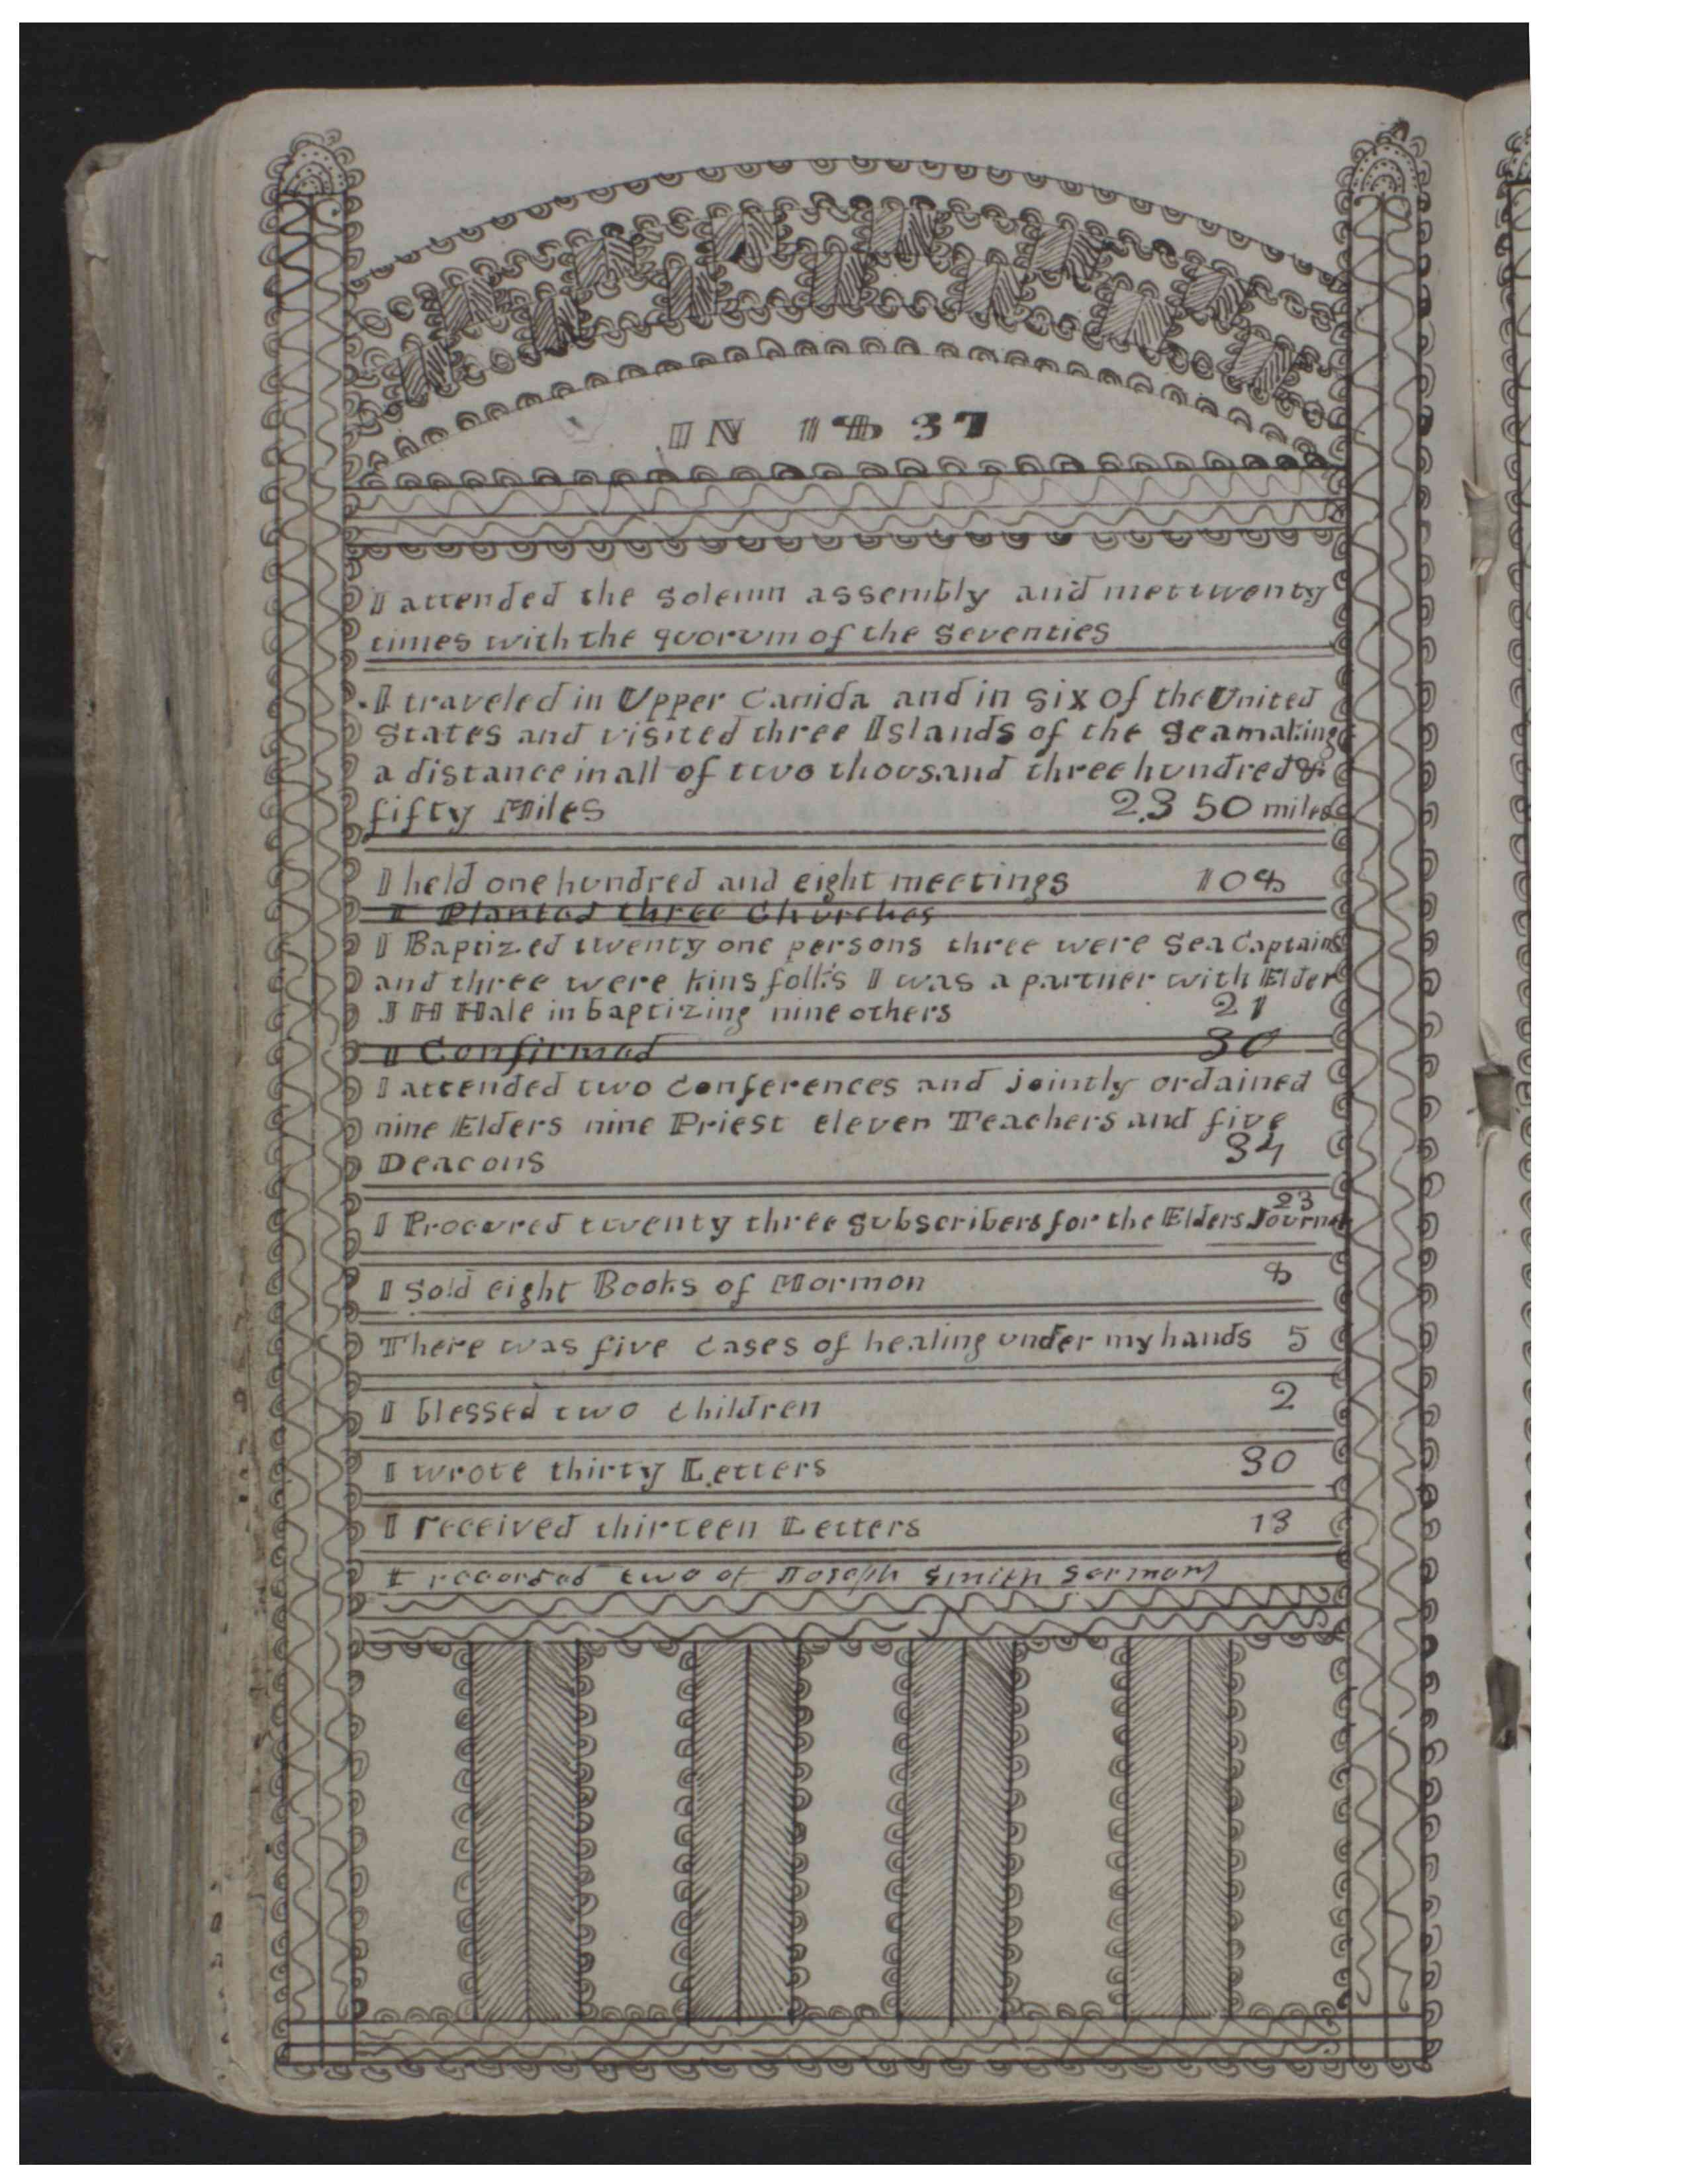 IN 1837
I attended the Solemn assembly and met twenty
times with the quorum of the Seventies
I traveled in Upper Canida and in six of the United
States and visited three Islands of the Sea making
a distance in all of two thousand three hundred &
fifty Miles 2,350 miles
I held one hundred and eight meetings 108
I Planted three Churches
I Baptized twenty one persons three were Sea Captains
and three were kinsfolks I was a partner with Elder
J H Hale in baptizing nine others 21
I Confirmed 30
I attended two Conferences and jointly ordained
nine Elders nine Priest eleven Teachers and five
Deacons 34
23
I Procured twenty three Subscribers for the Elders Journa
I Sold eight Books of Mormon 8
There was five cases of healing under my hands 5
I blessed two children 2
I wrote thirty Letters 30
I received thirteen Letters 13
I recorded two of Joseph Smith Sermons